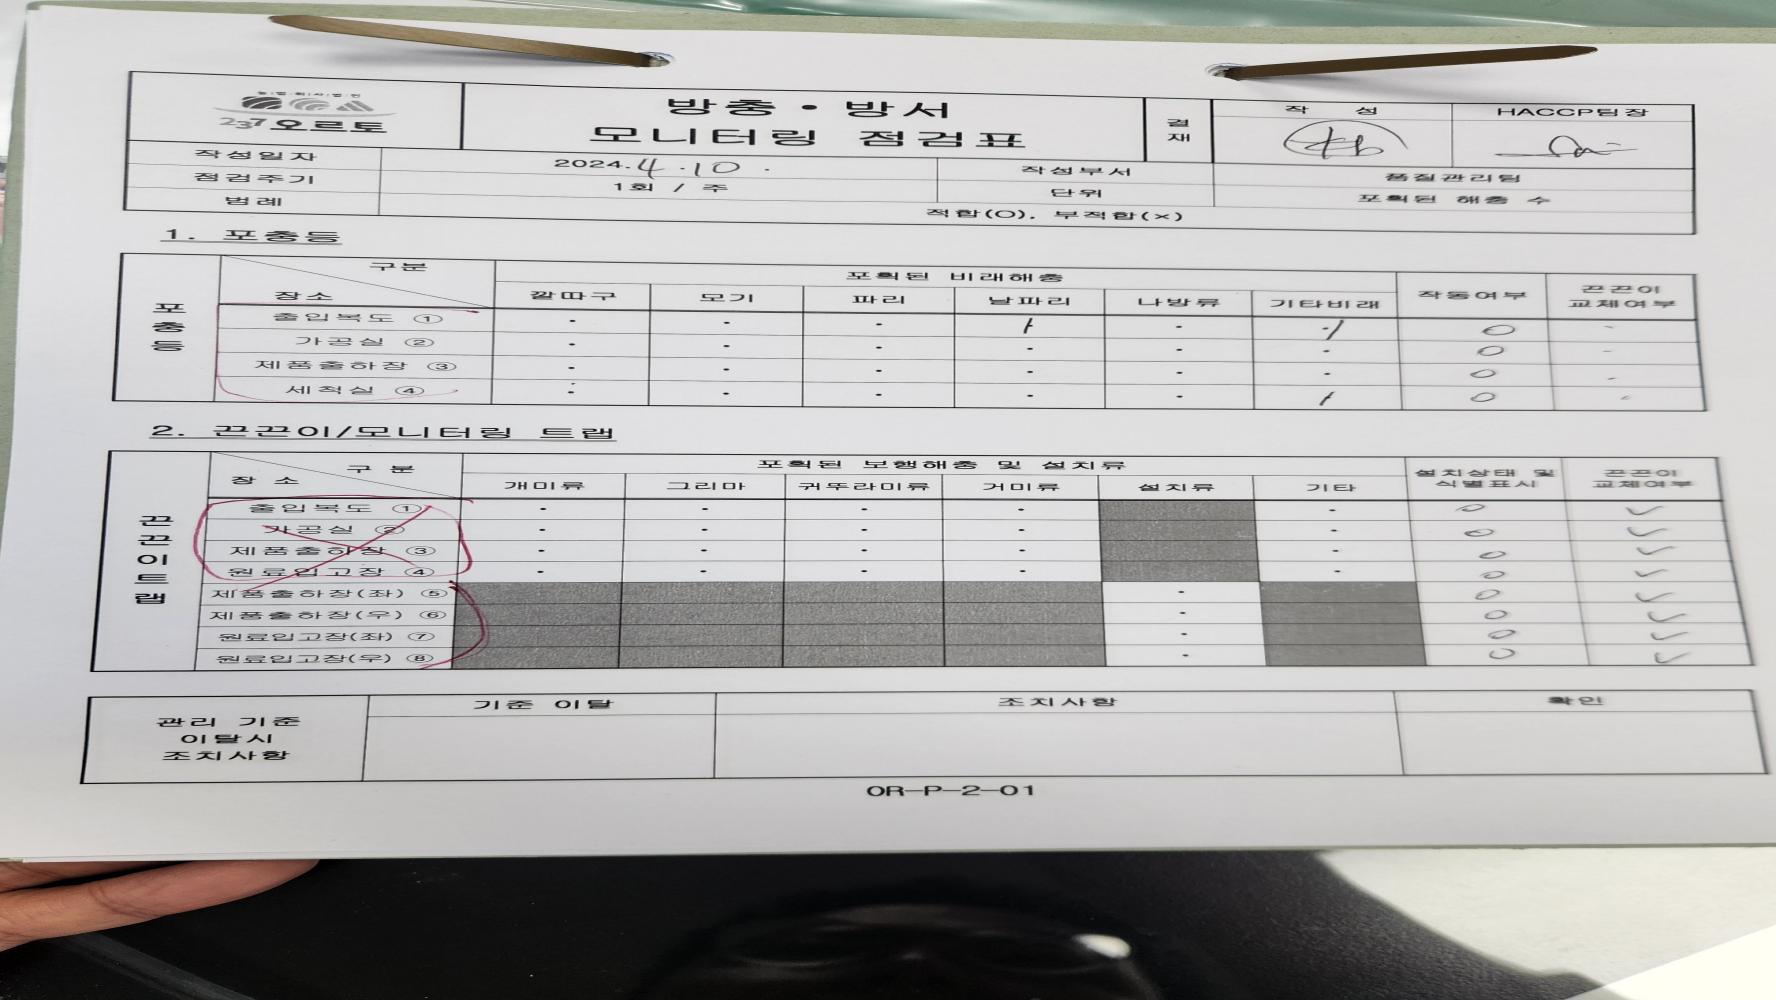 농업회사법인
237 오르토
방충·방서
모니터링 점검표
결재
작 성
HACCP팀장
작성일자
2024.4.10.
작성부서
품질관리팀
점검주기
1회 / 주
단위
포획된 해충 수
범례
적합(O), 부적합(×)
1. 포충등
포충등
구분
장소
포획된 비래해충
작동여부
끈끈이 교체여부
깔따구 모기 파리 날파리 나방류 기타비래
출입복도 ① · · · / · ·/ O -
가공실 ② · · · · · · O -
제품출하장 ③ · · · · · · O -
세척실 ④ · · · · · / O -
2. 끈끈이/모니터링 트랩
끈끈이트랩
구 분
장 소
포획된 보행해충 및 설치류
설치상태 및 식별표시
끈끈이 교체여부
개미류 그리마 귀뚜라미류 거미류 설치류 기타
출입복도 ① · · · · · O ✓
가공실 ② · · · · · O ✓
제품출하장 ③ · · · · · O ✓
원료입고장 ④ · · · · · O ✓
제품출하장(좌) ⑤ · O ✓
제품출하장(우) ⑥ · O ✓
원료입고장(좌) ⑦ · O ✓
원료입고장(우) ⑧ · O ✓
관리 기준
이탈시
조치사항
기준 이탈
조치사항
확인
OR-P-2-01